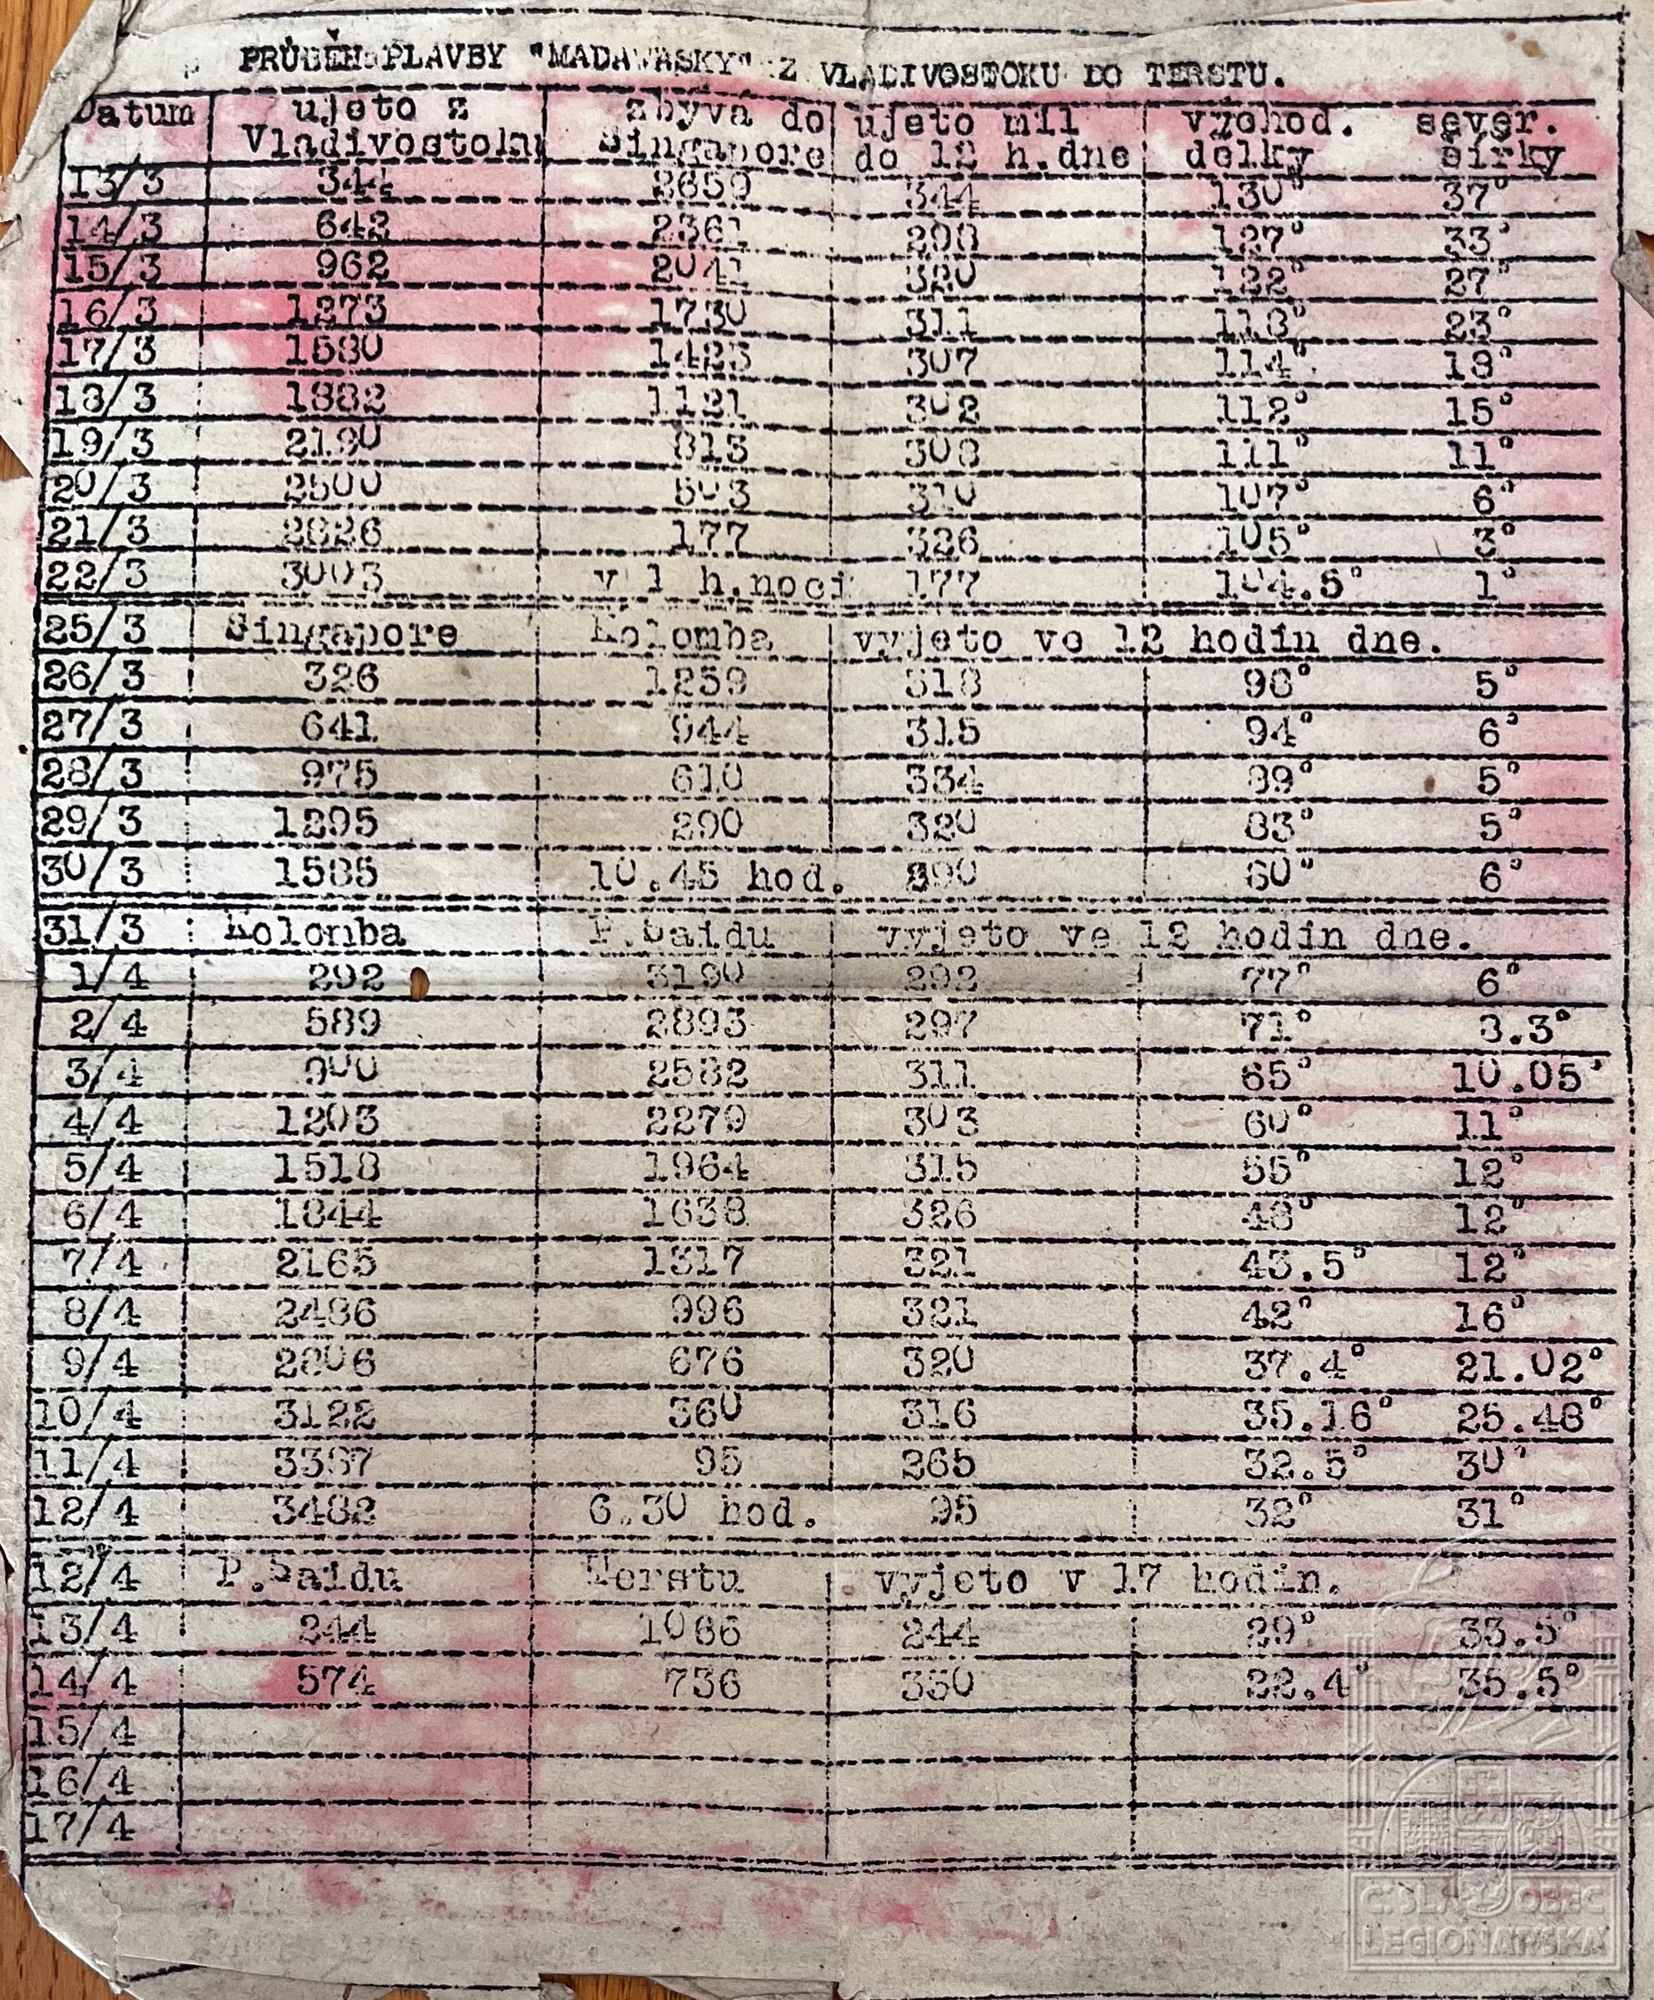 PRŮBĚH PLAVBY "MADAWASKY" Z VLADIVOSTOKU DO TERSTU.
Datum ujeto z Vladivostoku zbývá do Singapore ujeto mil do 12 h.dne východ. délky sever. šířky
13/3 344 2659 344 130° 37°
14/3 642 2361 298 127° 33°
15/3 962 2041 320 122° 27°
16/3 1273 1730 311 118° 23°
17/3 1580 1423 307 114° 18°
18/3 1882 1121 302 112° 15°
19/3 2190 813 308 111° 11°
20/3 2500 503 310 107° 6°
21/3 2826 177 326 105° 3°
22/3 3003 v 1 h.noci 177 104.5° 1°
25/3 Singapore Kolomba vyjeto ve 12 hodin dne.
26/3 326 1259 318 98° 5°
27/3 641 944 315 94° 6°
28/3 975 610 334 89° 5°
29/3 1295 290 320 83° 5°
30/3 1585 10.45 hod. 290 60° 6°
31/3 Kolomba P.Saidu vyjeto ve 12 hodin dne.
1/4 292 3190 292 77° 6°
2/4 589 2893 297 71° 8.3°
3/4 900 2582 311 65° 10.05°
4/4 1203 2279 303 60° 11°
5/4 1518 1964 315 55° 12°
6/4 1844 1638 326 48° 12°
7/4 2165 1317 321 43.5° 12°
8/4 2486 996 321 42° 16°
9/4 2806 676 320 37.4° 21.02°
10/4 3122 360 316 35.16° 25.48°
11/4 3387 95 265 32.5° 30°
12/4 3482 6.30 hod. 95 32° 31°
12/4 P.Saidu Terstu vyjeto v 17 hodin.
13/4 244 1066 244 29° 33.5°
14/4 574 736 330 22.4° 35.5°
15/4
16/4
17/4
ČSL. OBEC
LEGIONÁŘSKÁ